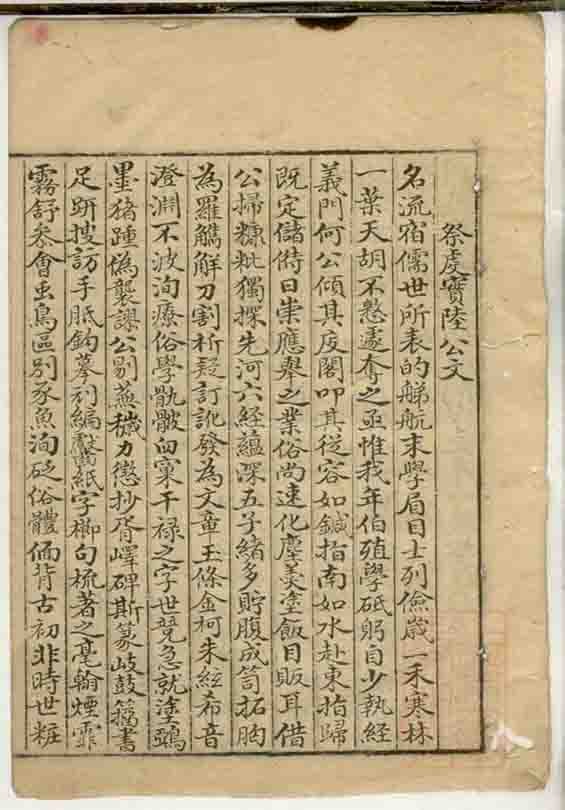 祭虔實陸公文
名流宿儒世所表的䑽航末學眉目士列儉歲一禾寒林
一葉天胡不憖遽奪之亟惟我年伯殖學砥躬自少執經
義門何公傾其庋閣叩其從容如鍼指南如水赴東指歸
既定儲偫日崇應舉之業俗尚速化塵羹塗飯目販耳借
公掃糠粃獨探先河六經蘊深五子緒多貯腹成笥拓胸
為羅觿解刀割析疑訂訛發為文章玉條金柯朱絃希音
澄淵不波洵療俗學骫骳䏜窠干祿之字世競急就塗鴉
墨豬踵偽襲謬公剔蕪穢力懲抄胥嶧碑斯篆岐鼓籀書
足趼搜訪手胝鉤摹列編齧紙字櫛句梳著之毫翰煙霏
霧舒參會虫鳥區別豕魚洵砭俗體偭背古初非時世粧